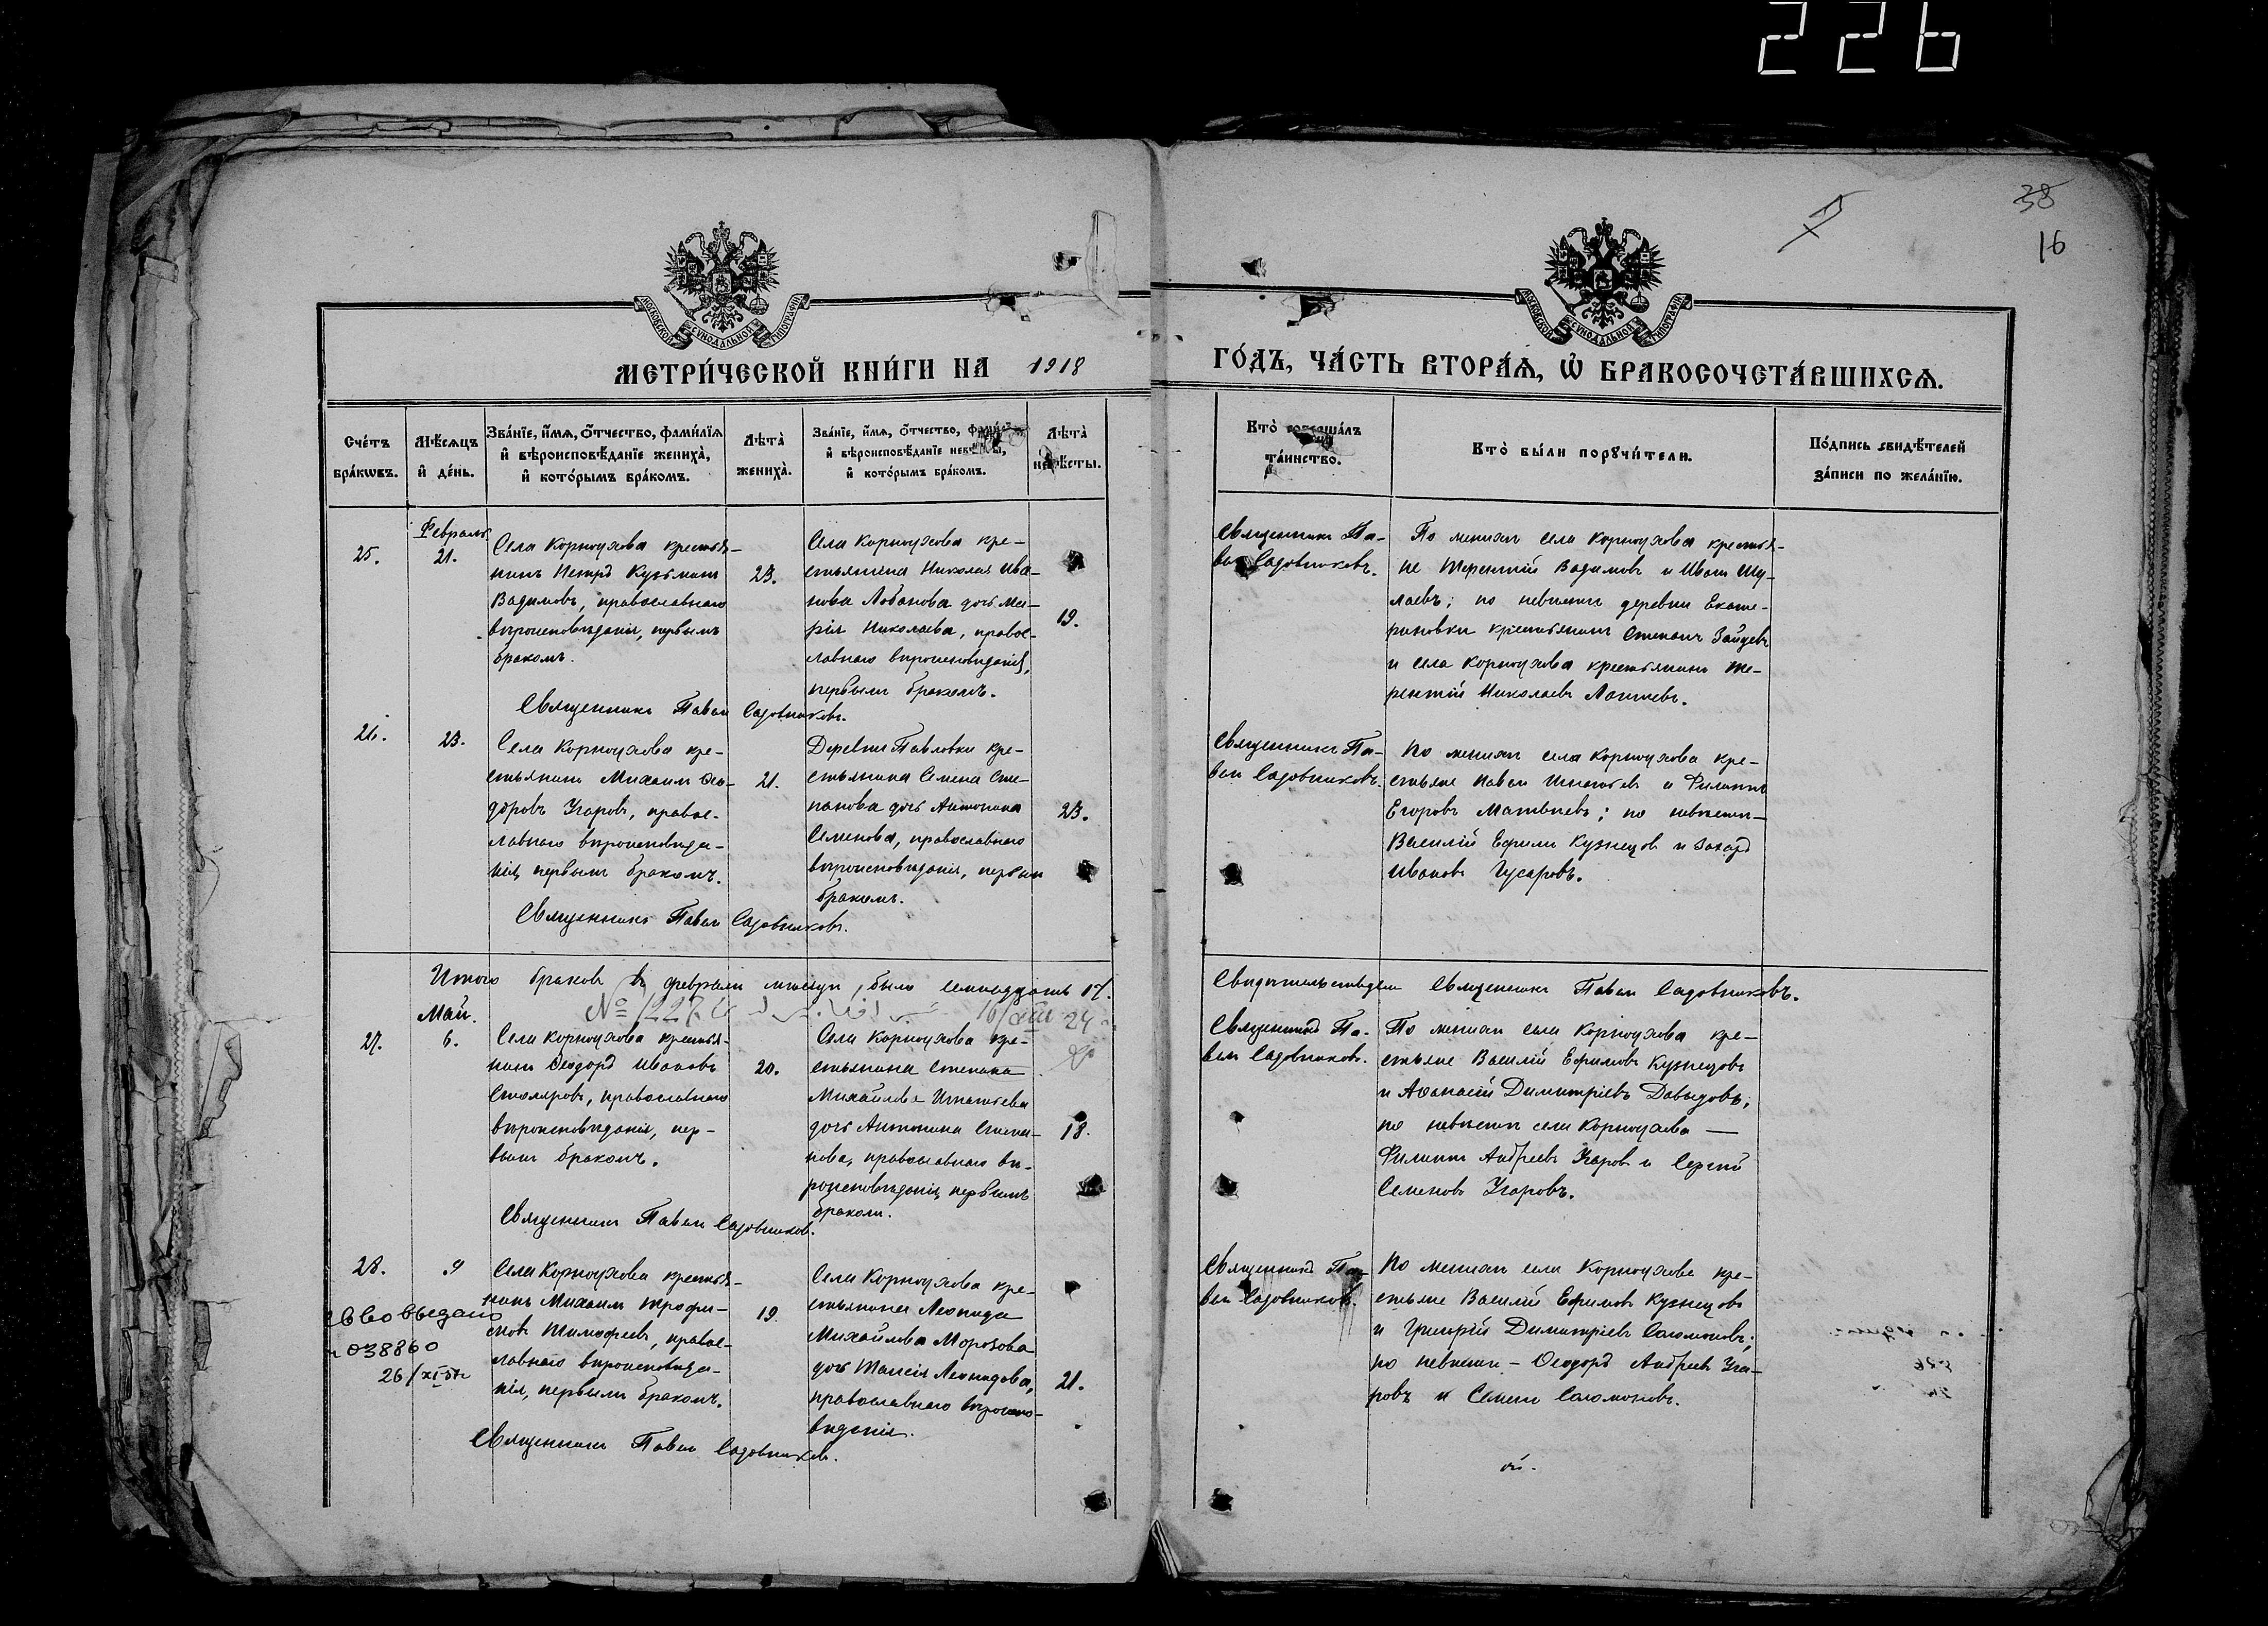 226
38
16
МОСКОВСКОЙ СУНОДАЛЬНОЙ ТИПОГРАФІИ
МОСКОВСКОЙ СУНОДАЛЬНОЙ ТИПОГРАФІИ
МЕТРИ́ЧЕСКОЙ КНИ́ГИ НА 1918
ГО́ДЪ, ЧА́СТЬ ВТОРА́Ѧ, Ѽ БРАКОСОЧЕТА́ВШИХСѦ.
Сче́тъ бра́кѡвъ.
Мѣ́сяцъ и҆ де́нь.
Зва́нїе, и҆́мѧ, ѻ҆́тчество, фами́лїѧ
и҆ вѣроисповѣ́данїе жениха̀,
и҆ кото́рымъ бра́комъ.
Лѣта̀ жениха̀.
Зва́нїе, и҆́мѧ, ѻ҆́тчество,
и҆ вѣроисповѣ́данїе невѣ́сты,
и҆ кото́рымъ бра́комъ.
Лѣта̀ невѣ́сты.
Кто̀ соверша́лъ та́инство.
Кто̀ бы́ли порꙋчи́тели.
По́дпись свидѣ́телей
за́писи по жела́нїю.
25.
Февраль
21.
Села Корноухова крестья-
нинъ Петръ Кузьминъ
Вадимовъ, православнаго
вѣроисповѣданія, первымъ
бракомъ.
23.
Села Корноухова кре-
стьянина Николая Ива-
нова Лобанова дочь Ма-
рія Николаева, правос-
лавнаго вѣроисповѣданія,
первымъ бракомъ.
19.
Священникъ Павелъ Садовниковъ.
Священникъ Па-
велъ Садовниковъ.
По женихѣ села Корноухова крестья-
не Терентій Вадимовъ и Иванъ Шу-
лаевъ; по невѣстѣ деревни Екате-
риновки крестьянинъ Степанъ Зайцевъ
и села Корноухова крестьянинъ Те-
рентій Николаевъ Лаптевъ.
26.
23.
Села Корноухова кре-
стьянинъ Михаилъ Ѳео-
доровъ Угаровъ, правос-
лавнаго вѣроисповѣда-
нія, первымъ бракомъ.
21.
Деревни Павловки кре-
стьянина Семена Сте-
панова дочь Антонина
Семенова, православнаго
вѣроисповѣданія, первым
бракомъ.
23.
Священникъ Павелъ Садовниковъ.
Священникъ Па-
велъ Садовниковъ.
По женихѣ села Корноухова кре-
стьяне Павелъ Игнатьевъ и Филиппъ
Егоровъ Матвѣевъ; по невѣстѣ —
Василій Ефимовъ Кузнецов и Захаръ
Ивановъ Гусаровъ.
Итого браковъ въ февралѣ мѣсяцѣ было семнадцать 17.
Свидѣтельствуетъ Священникъ Павелъ Садовниковъ.
№ 1227
Май.
27.
6.
Села Корноухова крестья-
нинъ Ѳеодоръ Ивановъ
Столяровъ, православнаго
вѣроисповѣданія, пер-
вымъ бракомъ.
20.
Села Корноухова кре-
стьянина Степана
Михайлова Игнатьева
дочь Антонина Степа-
нова, православнаго вѣ-
роисповѣданія, первымъ
бракомъ.
18.
Священникъ Павелъ Садовниковъ.
Священникъ Па-
велъ Садовниковъ.
По женихѣ села Корноухова кре-
стьяне Василій Ефимовъ Кузнецовъ
и Аѳанасій Димитріевъ Давыдовъ;
по невѣстѣ села Корноухова —
Филиппъ Андреевъ Угаровъ и Сергѣй
Семеновъ Угаровъ.
28.
9
Села Корноухова крестья-
нинъ Михаилъ Трофи-
мовъ Тимоѳеевъ, правос-
лавнаго вѣроисповѣда-
нія, первымъ бракомъ.
19.
Села Корноухова кре-
стьянина Леонида
Михайлова Морозова
дочь Таисія Леонидова,
православнаго вѣроиспо-
вѣданія.
21.
038860
26/XI-57г
Священникъ Павелъ Садовниковъ.
Священникъ Па-
велъ Садовниковъ.
По женихѣ села Корноухова кре-
стьяне Василій Ефимовъ Кузнецовъ
и Григорій Димитріевъ Соломоновъ;
по невѣстѣ — Ѳеодоръ Андреевъ Уга-
ровъ и Семенъ Соломоновъ.